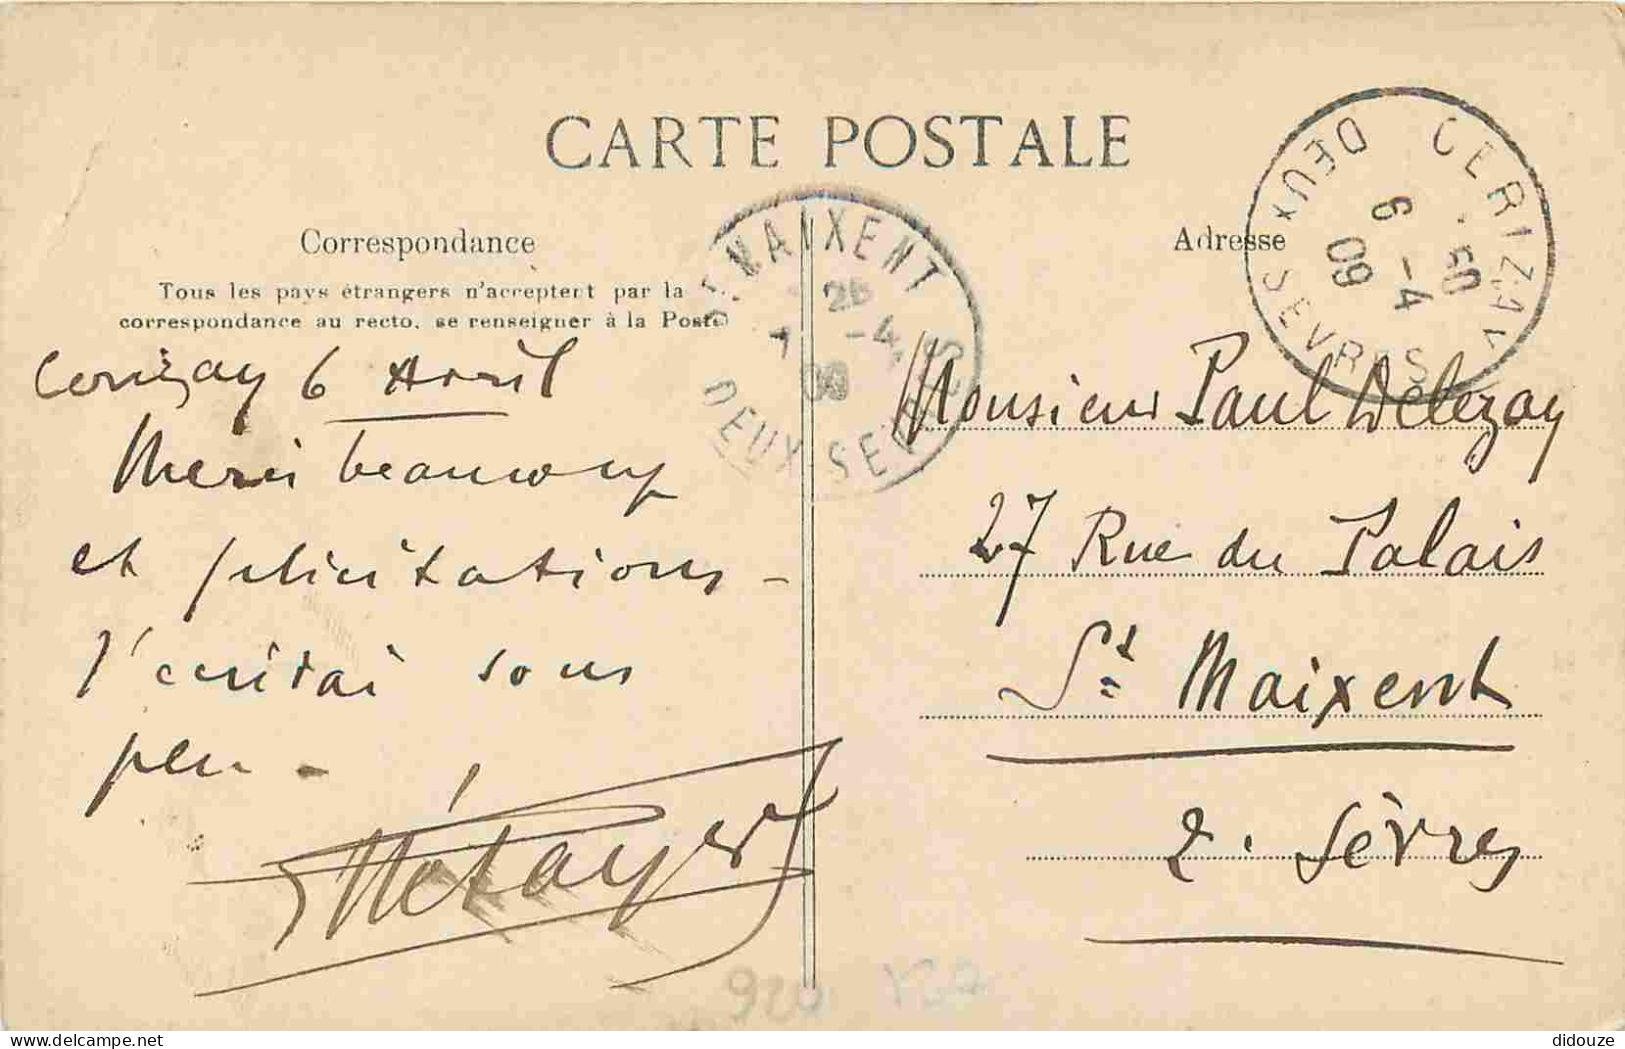 CARTE POSTALE
Correspondance
Tous les pays étrangers n'acceptent par la
correspondance au recto, se renseigner à la Poste
Cerizay 6 Avril
Merci beaucoup
et félicitations -
J'écrirai sous
peu -
Métayer
Adresse
Monsieur Paul Delezay
27 Rue du Palais
St Maixent
2. Sèvres
ST MAIXENT
25
7 -4
09
DEUX SEVRES
CERIZAY
6 -4
09
DEUX SEVRES
920
didouze